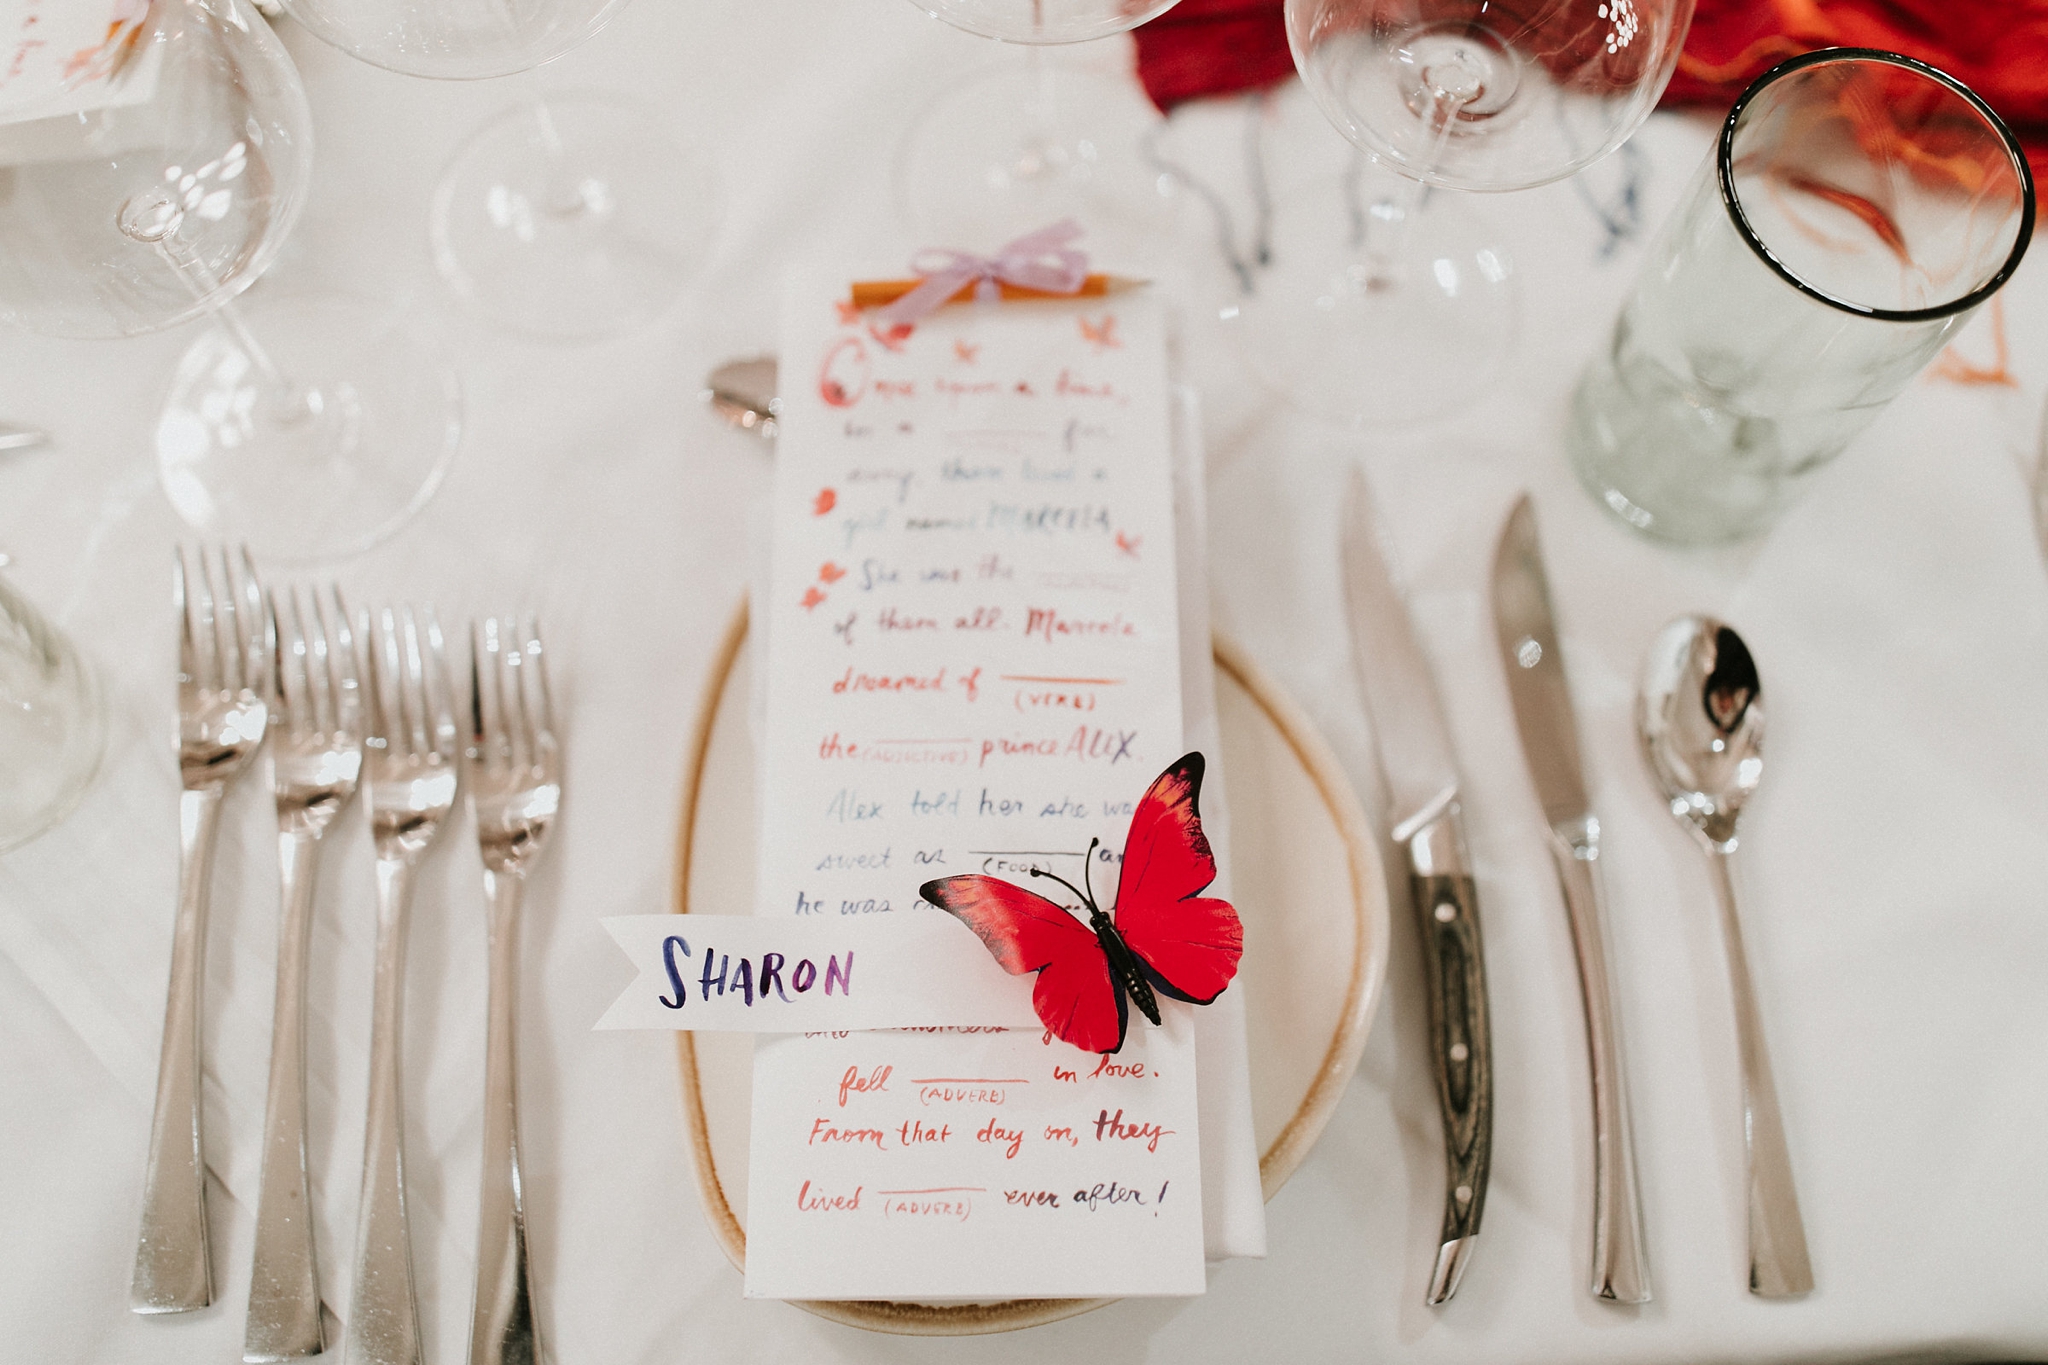 Once upon a time,
in a ______ far
away, there lived a
girl named MARCELA
She was the ______
of them all. Marcela
dreamed of ______
(VERB)
the ______ prince ALEX.
(ADJECTIVE)
Alex told her she was
sweet as ______
(FOOD)
he was
SHARON
fell ______ in love.
(ADVERB)
From that day on, they
lived ______ ever after!
(ADVERB)